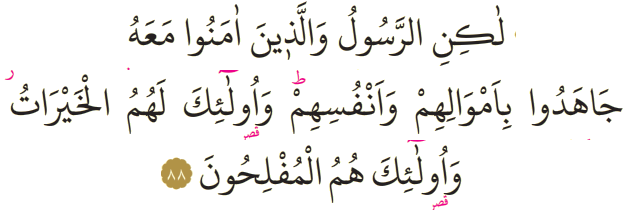 لٰكِنِ الرَّسُولُ وَالَّذ۪ينَ اٰمَنُوا مَعَهُ
جَاهَدُوا بِاَمْوَالِهِمْ وَاَنْفُسِهِمْۜ وَاُو۬لٰٓئِكَ لَهُمُ الْخَيْرَاتُۘ
وَاُو۬لٰٓئِكَ هُمُ الْمُفْلِحُونَ ﴿٨٨﴾